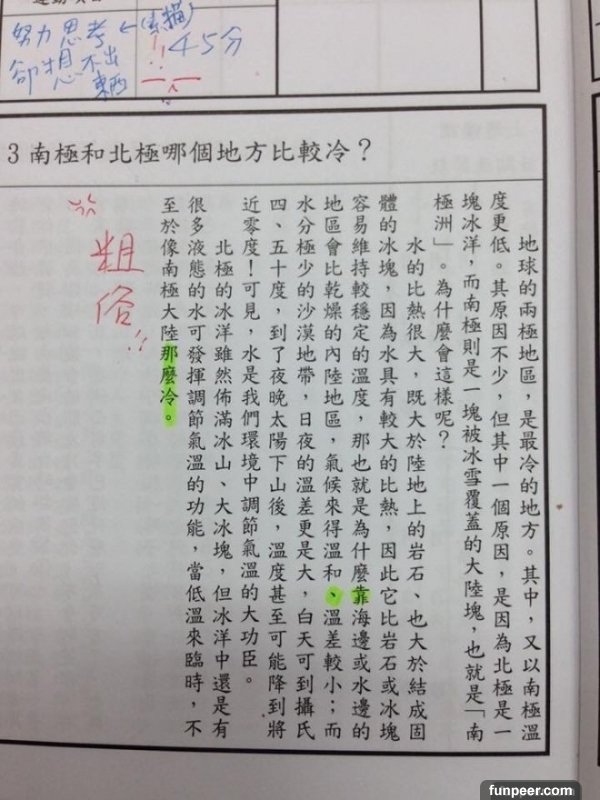 努力思考←(素描)
卻想不出
東西
!!
45分
3 南極和北極哪個地方比較冷?
地球的兩極地區,是最冷的地方。其中,又以南極溫
度更低。其原因不少,但其中一個原因,是因為北極是一
塊冰洋,而南極則是一塊被冰雪覆蓋的大陸塊,也就是「南
極洲」。為什麼會這樣呢?
水的比熱很大,既大於陸地上的岩石、也大於結成固
體的冰塊,因為水具有較大的比熱,因此它比岩石或冰塊
容易維持較穩定的溫度,那也就是為什麼靠海邊或水邊的
地區會比乾燥的內陸地區,氣候來得溫和、溫差較小;而
水分極少的沙漠地帶,日夜的溫差更是大,白天可到攝氏
四、五十度,到了夜晚太陽下山後,溫度甚至可能降到將
近零度!可見,水是我們環境中調節氣溫的大功臣。
北極的冰洋雖然佈滿冰山、大冰塊,但冰洋中還是有
很多液態的水可發揮調節氣溫的功能,當低溫來臨時,不
至於像南極大陸那麼冷。
粗俗!!
funpeer.com